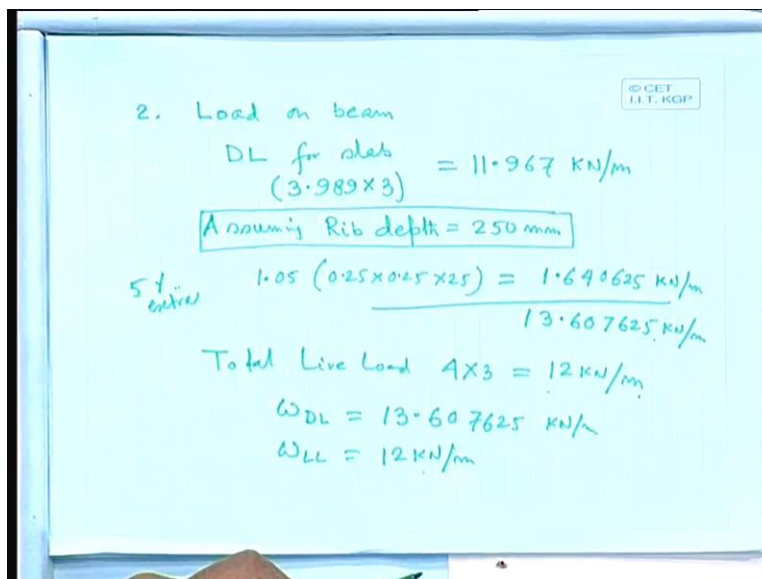 © CET
I.I.T. KGP
2. Load on beam
DL for slab
(3.989×3) = 11.967 KN/m
Assuming Rib depth = 250 mm
5% extra 1.05 (0.25×0.25×25) = 1.640625 KN/m
13.607625 KN/m
Total Live Load 4×3 = 12 KN/m
ωDL = 13.607625 KN/m
ωLL = 12 KN/m